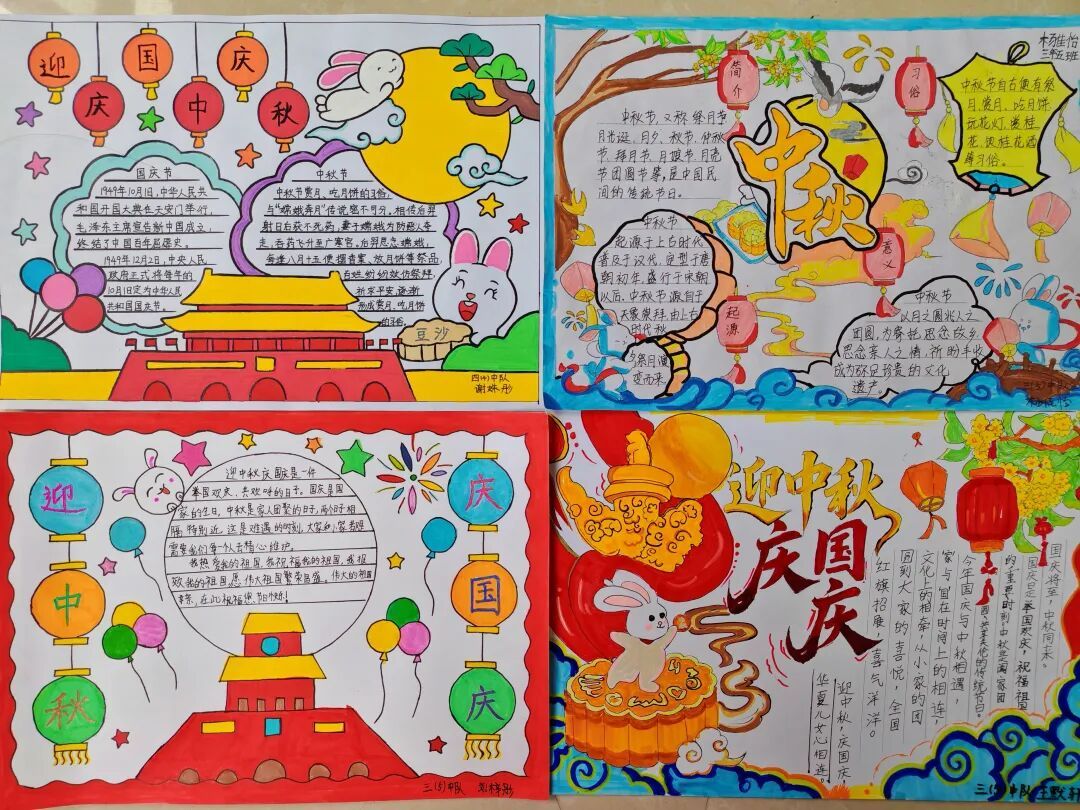 迎国庆
庆中秋
国庆节
1949年10月1日,中华人民共
和国开国大典在天安门举行,
毛泽东主席宣告新中国成立,
终结了中国百年屈辱史。
1949年12月2日,中央人民
政府正式将每年的
10月1日定为中华人民
共和国国庆节。
中秋节
中秋节赏月、吃月饼的习俗,
与“嫦娥奔月”传说密不可分,相传后羿
射日后获不死药,妻子嫦娥为防恶人夺
走,吞药飞升至广寒宫,后羿思念嫦娥,
每逢八月十五便摆香案,放月饼等祭品,
百姓纷纷效仿祭拜
祈求平安,逐渐
形成赏月、吃月饼
的习俗。
豆沙
四(4)中队
杨佳怡
三年五班
中秋
简介
中秋节,又称祭月节
月光诞、月夕、秋节、仲秋
节、拜月节、月娘节、月亮
节、团圆节等,是中国民
间的传统节日。
习俗
中秋节自古便有祭
月、赏月、吃月饼
玩花灯、赏桂
花、饮桂花酒
等习俗。
中秋节
起源于上古时代
普及于汉代,定型于唐
朝初年,盛行于宋朝
以后,中秋节源自于
天象崇拜,由上古
时代秋
夕祭月演
变而来
起源
意义
中秋节
以月之圆兆人之
团圆,为寄托思念故乡
思念亲人之情,祈盼丰收
成为弥足珍贵的文化
遗产。
迎中秋
庆国庆
迎中秋庆国庆是一件
举国欢庆、共欢呼的日子。国庆是国
家的生日,中秋是家人团聚的日子,
需要我们每个人去精心维护。
我热爱我的祖国,我祝福我的祖国,我祖
三(5)中队
迎中秋
庆国庆
国庆将至,中秋同来。
今年国庆与中秋相遇,
家与国在时间上的相连,
文化上的相牵,从小家的团
圆到大家的喜悦,全国
红旗招展,喜气洋洋。
迎中秋,庆国庆,
华夏儿女心相连。
三(5)中队 王默轩